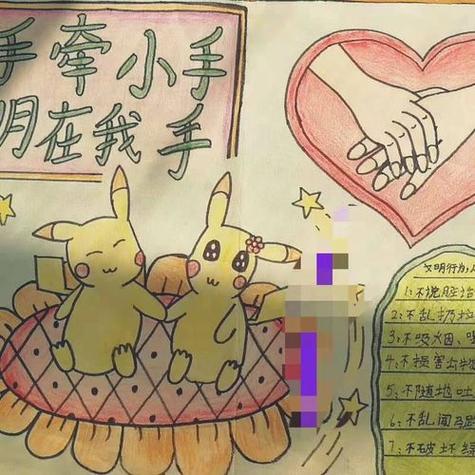 手牵小手
明在我手
文明行为
1:不说脏话
2:不乱扔垃
3:不吸烟、
4:不损害公物
5:不随地吐
6:不乱闯
7:不破坏绿